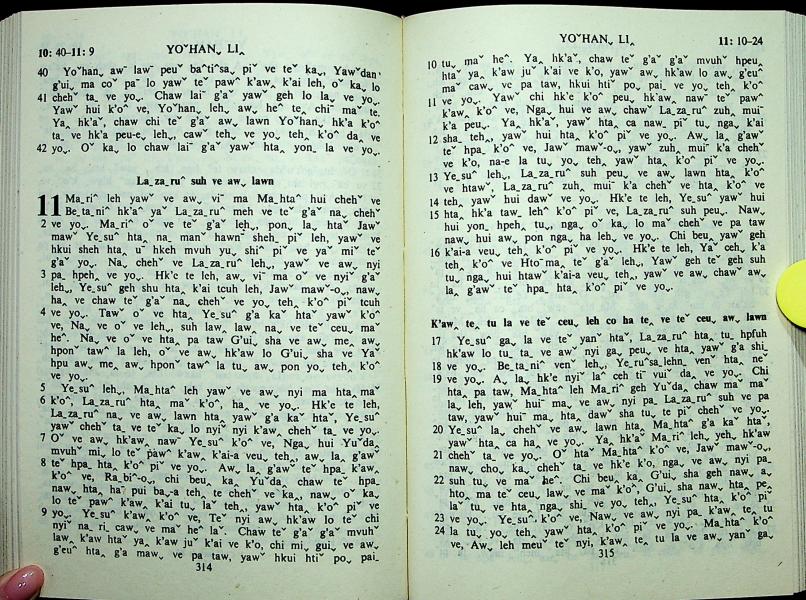 10: 40–11: 9 YOˇHANˬ LIꞈ
40 Yoˇhanˬ aw¯ lawˇ peuˇ baˆtiˆsaˍ piˇ ve teˇ kaˬ, Yawˇdanˬ
g'uiˬ ma coˇ paˇ lo yawˇ teˇ pawˇ k'awꞈ k'ai leh, oˇ kaˬ lo
41 chehˇ taˬ ve yoˬ. Chaw laiˇ g'aˇ yawˇ geh lo laˬ ve yoˬ.
Yawˇ hui k'oˆ ve, Yoˇhanˬ lehˬ awˬ heˆ teˬ chiˇ maˇ te.
Yaˬ hk'aˆ, chaw chi teˇ g'aˇ awˬ lawn Yoˇhanˬ hk'a k'oˆ
taˬ ve hk'a peu-eˬ lehˬ, cawˇ teh ve yoˬ teh k'oˆ daˬ ve
42 yoˬ. Oˇ kaˬ lo chaw laiˇ g'aˇ yawˇ htaˬ yonˍ la ve yoˬ.
LaˍzaˍruˆH suh ve awˬ lawn
11 Maˍriˆ leh yawˇ ve awˬ vi¯ ma Maˍhtaˆ hui chehˇ ve
Beˍtaˍniˆ hk'aˆ yaˇ Laˍzaˍruˆ meh ve teˇ g'aˇ naˬ chehˇ
2 ve yoˬ. Maˍriˆ oˇ ve teˇ g'aˇ lehˬ, ponˬ laˬ htaˇ Jawˇ
mawˇ Yeˍsuˆ htaˬ naˍ manˇ hawnˇ shehˍ piˇ leh, yawˇ ve
hkui sheh htaˬ uˇ hkeh mvuh yuˬ shiˆ piˇ ve yaˇ miˇ teˇ
g'aˇ yoˬ. Naˬ chehˇ ve Laˍzaˍruˆ lehˬ, yawˇ ve awˬ nyi
3 paˍ hpehꞈ ve yoˬ. Hk'e te leh, awˬ vi¯ ma oˇ ve nyiˇ g'aˇ
lehˬ, Yeˍsuˆ geh shu htaˬ k'ai tcuh leh, Jawˇ mawˇ-oˬ, nawˬ
haˬ ve chaw teˇ g'aˇ naˬ chehˇ ve yoˬ teh k'oˆ piˇ tcuh
4 ve yoˬ. Tawˇ oˇ ve htaˬ Yeˍsuˆ g'a kaˇ htaˇ yawˇ k'oˆ
ve, Naˬ ve oˇ ve lehˬ, suh lawˬ lawˬ naˬ ve teˇ ceuˬ maˇ
heˆ. Naˬ ve oˇ ve htaˬ pa taw G'uiˬ sha ve awˬ meˍ awˬ
hponˇ tawˆ la leh, oˇ ve awˬ hk'aw lo G'uiˬ sha ve Yaˇ
hpu awˬ meˍ awˬ hponˇ tawˆ la tuˬ awˬ ponˬ yoˬ teh k'oˆ
ve yoˬ.
5 Yeˍsuˆ lehˬ, Maˍhtaˆ leh yawˇ ve awˬ nyi ma htaˬ maˇ
6 k'oˆ, Laˍzaˍruˆ htaˬ maˇ k'oˆ, haˬ ve yoˬ. Hk'e te leh,
Laˍzaˍruˆ naˬ ve awˬ lawn htaˬ yawˇ g'a kaˇ htaˇ, Yeˍsuˆ
yawˇ chehˇ taˬ ve teˇ kaˬ lo nyiˇ nyi k'awꞈ chehˇ taˬ ve yoˬ.
7 Oˇ ve awˬ hk'aw nawˇ Yeˍsuˆ k'oˆ ve, Ngaˬ hui Yuˇdaˬ
mvuhˇ miˬ lo teˇ pawˇ k'awꞈ k'ai-a veuˬ tehˬ, awˬ laˬ g'awˇ
8 teˇ hpaˍ htaˬ k'oˆ piˇ ve yoˬ. Awˬ laˬ g'awˇ teˇ hpaˍ k'awˬ
k'oˆ ve, Raˍbi¯-oˬ, chi beuˬ kaˬ Yuˇdaˬ chaw teˇ hpaˍ
nawˬ htaˬ haˆ pui baˬ-a teh te chehˇ ve kaˬ, nawˬ oˇ kaˬ
lo teˇ pawˇ k'awꞈ k'ai tuˬ la tehˬ, yawˇ htaˬ k'oˆ piˇ ve
9 yoˬ. Yeˍsuˆ k'awˬ k'oˆ ve, Teˇ nyi awˬ hk'aw lo teˇ chi
nyiˇ naˍriˬ cawˬ ve maˇ heˆ laˇ. Chaw teˇ g'aˇ g'aˇ mvuhˇ
lawꞈ k'aw htaˇ yaˬ k'aw juˇ k'ai ve k'o, chi miˬ guiˬ ve awˬ
g'euˆ htaˬ g'a mawˬ ve pa taw, yawˇ hkui htiˇ poˬ paiˍ
314
YOˇHANˬ LIꞈ 11: 10–24
10 tuˬ maˇ heˆ. Yaˬ hk'aˆ, chaw teˇ g'aˇ g'aˇ mvuhˇ hpeuˬ
htaˇ yaˬ k'aw juˇ k'ai ve k'o, yawˇ awˬ hk'aw lo awˬ g'euˆ
maˇ cawˬ ve pa taw, hkui htiˇ poˬ paiˍ ve yoˬ teh k'oˆ
11 ve yoˬ. Yawˇ chi hk'e k'oˆ peuˬ hk'awˬ nawˇ teˇ pawˇ
k'awꞈ k'oˆ ve, Ngaˬ hui ve awˬ chawˇ Laˍzaˍruˆ zuhˬ muiˇ
k'a peuˬ. Yaˬ hk'aˆ, yawˇ htaˬ ca nawˬ piˇ tuˬ ngaˬ k'ai
12 sha tehˬ, yawˇ hui htaˬ k'oˆ piˇ ve yoˬ. Awˬ laˬ g'awˇ
teˇ hpaˍ k'oˆ ve, Jawˇ mawˇ-oˬ, yawˇ zuhˬ muiˇ k'a chehˇ
ve k'o, na-e la tuˬ yoˬ tehˬ, yawˇ htaˬ k'oˆ piˇ ve yoˬ.
13 Yeˍsuˆ lehˬ, Laˍzaˍruˆ suh peuˬ ve awˬ lawn htaˬ k'oˆ
ve htawˇ, Laˍzaˍruˆ zuhˬ muiˇ k'a chehˇ ve htaˬ k'oˆ ve
14 tehˬ yawˇ hui dawˇ ve yoˬ. Hk'e te leh, Yeˍsuˆ yawˇ hui
15 htaˬ hk'a tawˬ lehˆ k'oˆ piˇ ve, Laˍzaˍruˆ suh peuˬ. Nawˬ
hui yonˍ hpehˬ tuˬ, ngaˬ oˇ kaˬ lo maˇ chehˇ ve pa taw
nawˬ hui awˬ pon ngaˬ ha lehˬ ve yoˬ. Chi beuˬ yawˇ geh
16 k'ai-a veuˬ teh k'oˆ piˇ ve yoˬ. Hk'e te leh, Yaˇ cehˬ k'a
teh k'oˆ ve Hto¯maˬ teˇ g'aˇ lehˬ, Yawˇ geh teˇ geh suh
tuˬ ngaˬ hui htawˇ k'ai-a veuˬ tehˬ, yawˇ ve awˬ chawˇ awˬ
laˬ g'awˇ teˇ hpaˍ htaˬ k'oˆ piˇ ve yoˬ.
K'awꞈ teꞈ tu la ve teˇ ceuˬ leh co ha teꞈ ve teˇ ceuˬ awˬ lawn
17 Yeˍsuˆ gaˍ la ve teˇ yanˇ htaˇ, Laˍzaˍruˆ htaˬ tuˬ hpfuh
hk'aw lo tuˍ taˬ ve awˬ nyi gaˬ peuˬ ve htaˬ yawˇ g'a shiˍ
18 ve yoˬ. Beˍtaˍniˆ venˇ lehˬ, Yeˍruˆsaˍlehnˬ venˇ htaˬ neˇ
19 ve yoˬ. Aˬ laˬ hk'e nyiˇ laˆ ceh tiˇ vuiˇ daˬ ve yoˬ. Chi
htaˬ pa taw, Maˍhtaˆ leh Maˍriˆ geh Yuˇdaˬ chaw maˇ maˇ
la lehˬ yawˇ hui maˇ ve awˬ nyi pa Laˍzaˍruˆ suh ve pa
taw, yawˇ hui maˇ htaˬ dawˇ sha tuˬ teˬ piˇ chehˇ ve yoˬ.
20 Yeˍsuˆ laˬ chehˇ ve awˬ lawn htaˬ Maˍhtaˆ g'a kaˇ htaˇ,
yawˇ htaˬ ca haˬ ve yoˬ. Yaˬ hk'aˆ Maˍriˆ lehˬ yehˬ hk'aw
21 chehˇ taˬ ve yoˬ. Oˇ htaˇ Maˍhtaˆ k'oˆ ve, Jawˇ mawˇ-oˬ,
nawˬ choˬ kaˬ chehˇ taˬ ve hk'e k'o, ngaˬ ve awˬ nyi paˍ
22 suh tuˬ ve maˇ heˆ. Chi beuˬ kaˬ G'uiˬ sha geh nawˬ aˬ
hto maˬ teˇ ceuˬ lawˬ ve maˇ k'oˆ, G'uiˬ sha nawˬ htaˬ peꞈ
laˇ tuˬ ve htaˬ ngaˬ shiˍ ve yoˬ tehˬ, Yeˍsuˆ htaˬ k'oˆ piˇ
23 ve yoˬ. Yeˍsuˆ k'oˆ ve, Nawˬ ve awˬ nyi paˍ k'awꞈ teꞈ tu
24 la tuˬ yoˬ tehˬ, yawˇ htaˬ k'oˆ piˇ ve yoˬ. Maˍhtaˆ k'oˆ
ve, Awˬ leh meuˇ teˇ nyi, k'awꞈ teꞈ tu la ve awˬ yanˇ gaˬ
315